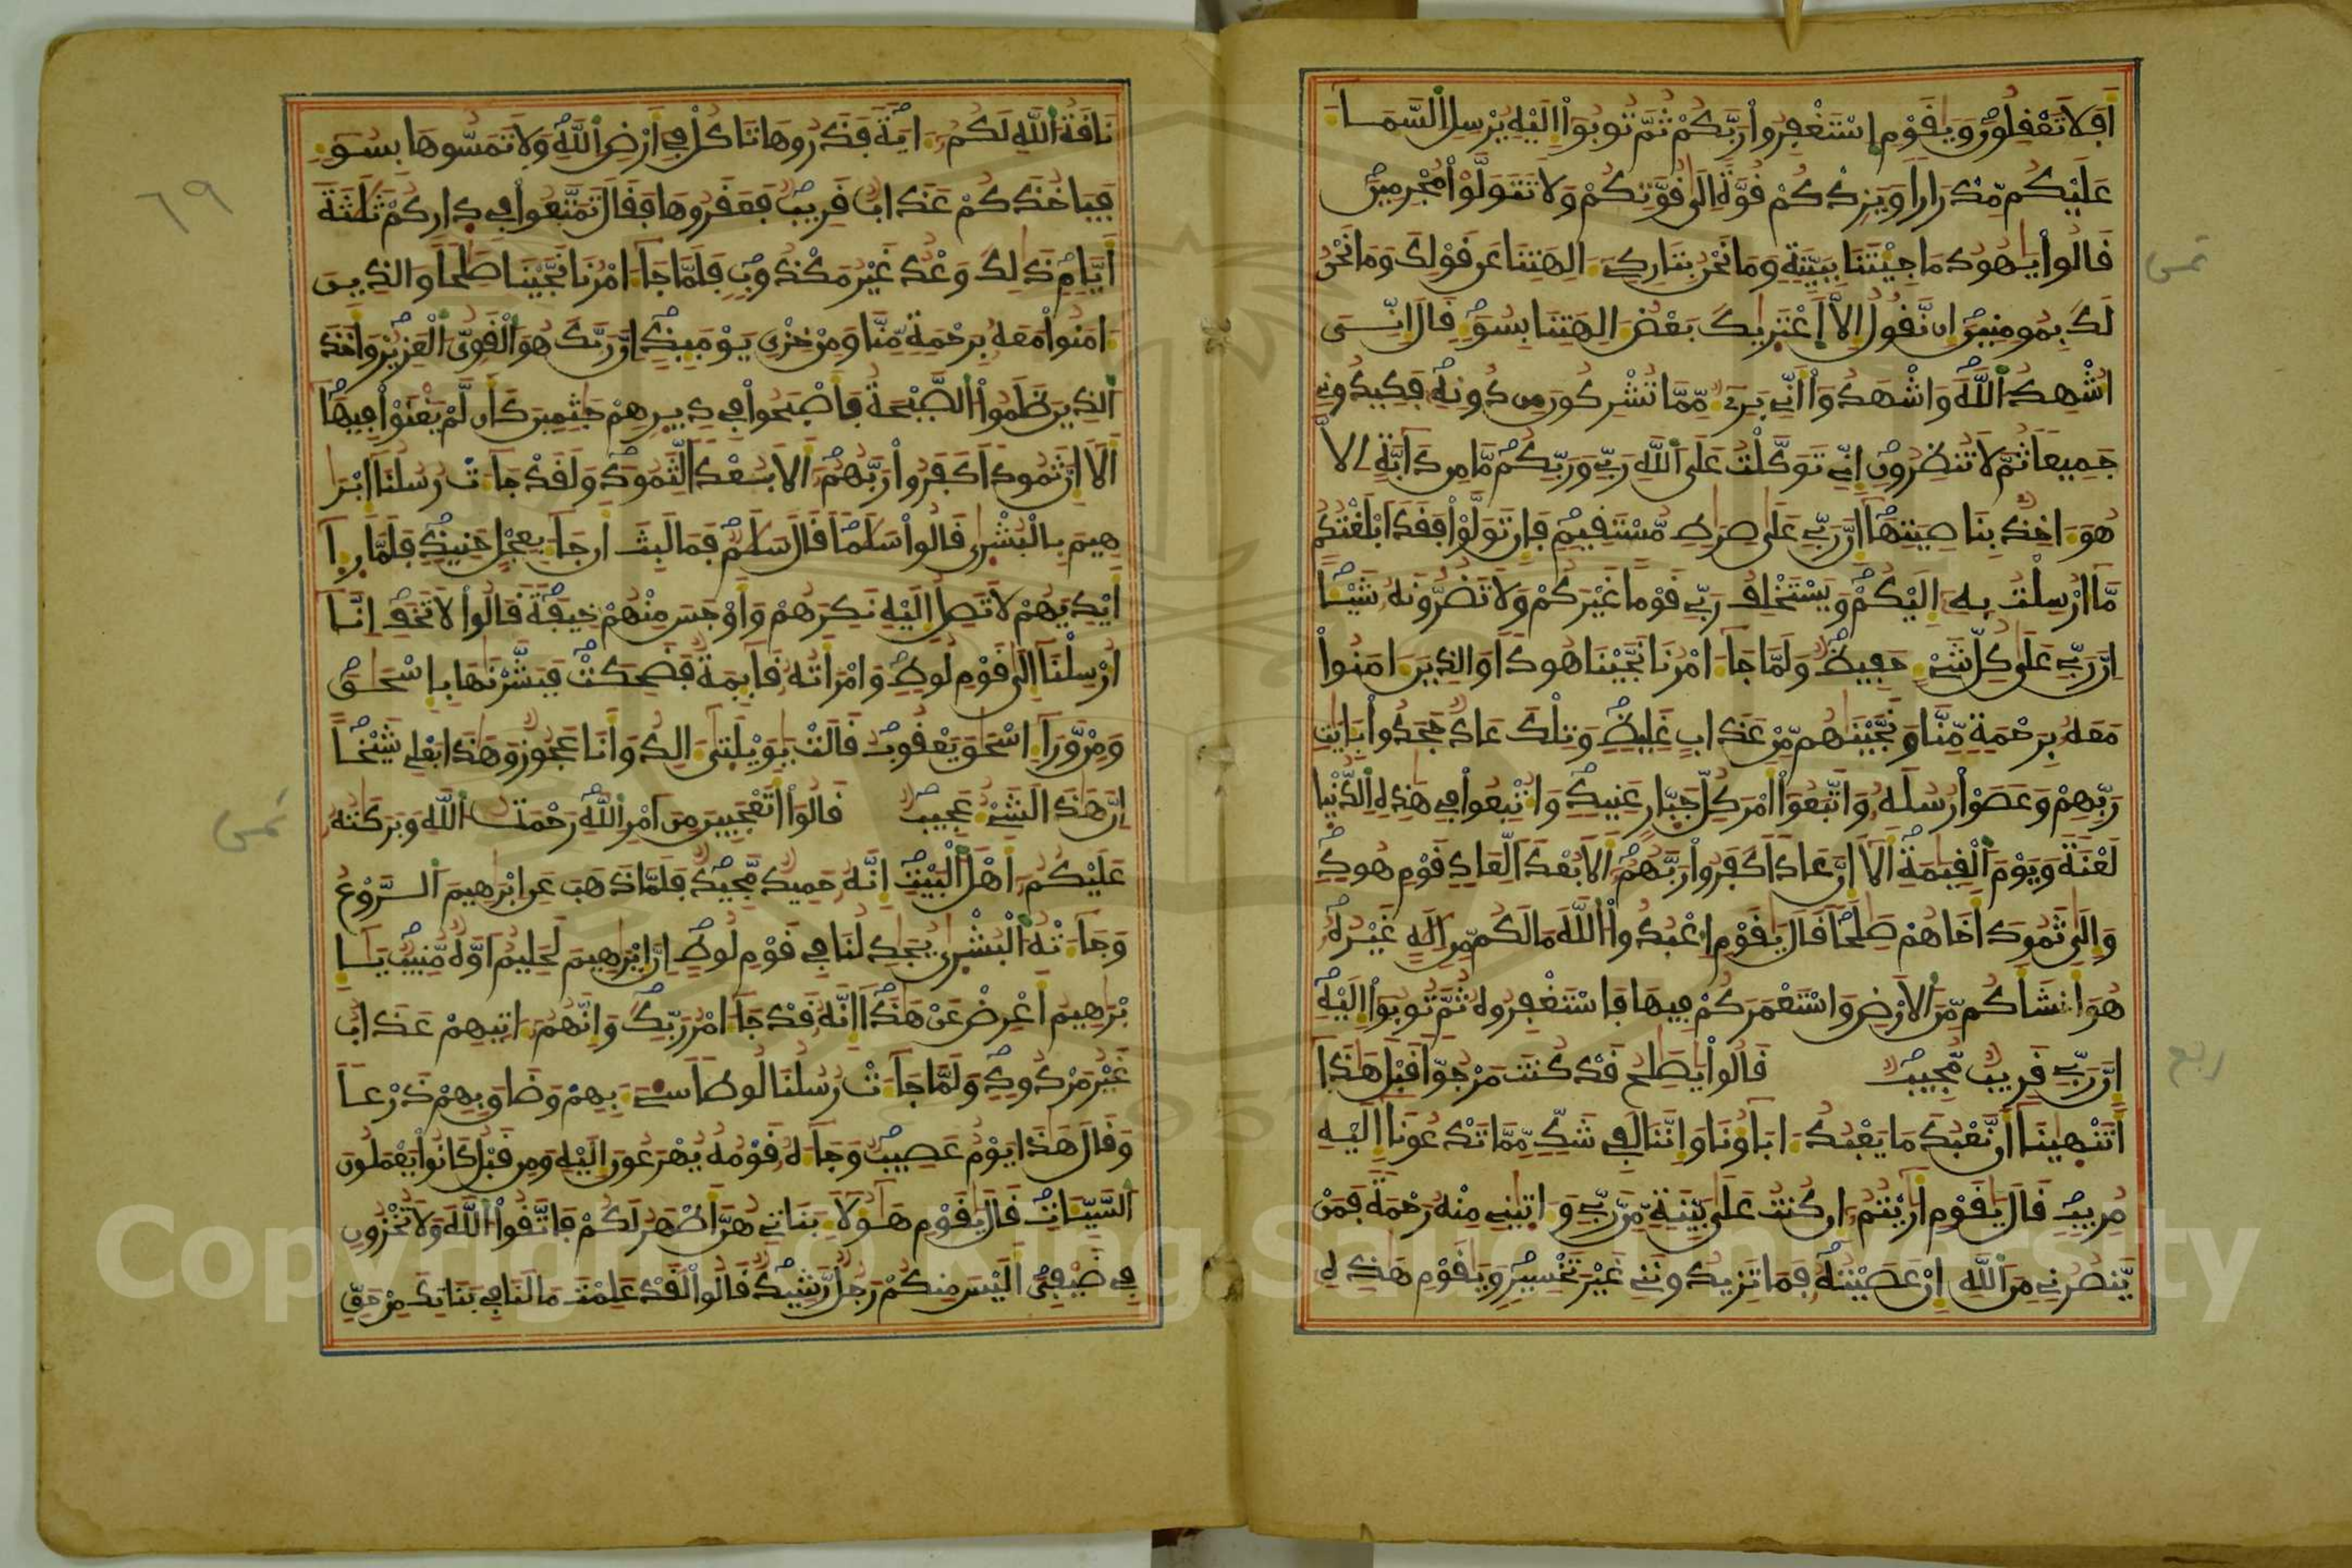 افلا تعقلون ويقوم استغفروا ربكم ثم توبوا اليه يرسل السما
عليكم مدرارا ويزدكم قوة الى قوتكم ولا تتولوا مجرمين
قالوا يهود ما جيتنا ببينة وما نحن بتاركے الهتنا عن قولك وما نحن
لك بمومنين ان نقول الا اعتريك بعض الهتنا بسو قال انے
اشهد الله واشهدوا اني بري مما تشركون من دونه فكيدوني
جميعا ثم لا تنظرون اني توكلت على الله ربي وربكم ما من دابة الا
هو اخذ بناصيتها ان ربي على صرط مستقيم فان تولوا فقد ابلغتكم
ما ارسلت به اليكم ويستخلف ربي قوما غيركم ولا تضرونه شيا
ان ربي على كل شے حفيظ ولما جا امرنا نجينا هودا والذين امنوا
معه برحمة منا ونجينهم من عذاب غليظ وتلك عاد جحدوا بايت
ربهم وعصوا رسله واتبعوا امر كل جبار عنيد واتبعوا في هذه الدنيا
لعنة ويوم القيمة الا ان عادا كفروا ربهم الا بعدا لعاد قوم هود
والى ثمود اخاهم صلحا قال يقوم اعبدوا الله ما لكم من اله غيره
هو انشاكم من الارض واستعمركم فيها فاستغفروه ثم توبوا اليه
ان ربي قريب مجيب قالوا يصلح قد كنت مرجوا قبل هذا
اتنهينا ان نعبد ما يعبد اباونا واننا لفي شك مما تدعونا اليه
مريب قال يقوم اريتم ان كنت على بينة من ربي واتيني منه رحمة فمن
ينصرني من الله ان عصيته فما تزيدونني غير تخسير ويقوم هذه
ناقة الله لكم اية فذروها تاكل في ارض الله ولا تمسوها بسو
فياخذكم عذاب قريب فعقروها فقال تمتعوا في داركم ثلثة
ايام ذلك وعد غير مكذوب فلما جا امرنا نجينا صلحا والذين
امنوا معه برحمة منا ومن خزي يوميذ ان ربك هو القوي العزيز واخذ
الذين ظلموا الصيحة فاصبحوا في ديرهم جثمين كان لم يغنوا فيها
الا ان ثمودا كفروا ربهم الا بعدا لثمود ولقد جات رسلنا ابر
هيم بالبشرى قالوا سلما قال سلم فما لبث ان جا بعجل حنيذ فلما را
ايديهم لا تصل اليه نكرهم واوجس منهم خيفة قالوا لا تخف انا
ارسلنا الى قوم لوط وامراته قايمة فضحكت فبشرنها باسحق
ومن ورا اسحق يعقوب قالت يويلتى الد وانا عجوز وهذا بعلي شيخا
ان هذا لشے عجيب قالوا اتعجبين من امر الله رحمت الله وبركته
عليكم اهل البيت انه حميد مجيد فلما ذهب عن ابرهيم الروع
وجاته البشرى يجدلنا في قوم لوط ان ابرهيم لحليم اوه منيب يا
برهيم اعرض عن هذا انه قد جا امر ربك وانهم اتيهم عذاب
غير مردود ولما جات رسلنا لوطا سے بهم وضاق بهم ذرعا
وقال هذا يوم عصيب وجاه قومه يهرعون اليه ومن قبل كانوا يعملون
السيات قال يقوم هولا بناتي هن اطهر لكم فاتقوا الله ولا تخزون
في ضيفي اليس منكم رجل رشيد قالوا لقد علمت ما لنا في بناتك من حق
٦٩
ثمن
ربع
ثمن
Copyright © King Saud University
1957